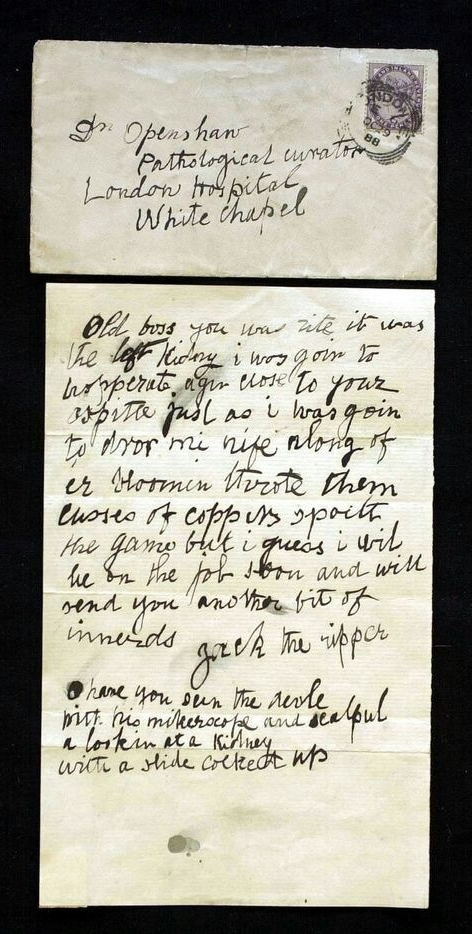 Dr Openshaw
Pathological curator
London Hospital
White chapel
LONDON
OC29
88
Old boss you was rite it was
the left kidny i was goin to
hopperate agin close to your
ospitle just as i was goin
to dror mi nife along of
er bloomin throte them
cusses of coppers spoilt
the game but i guess i wil
be on the job soon and will
send you another bit of
innerds
Jack the ripper
O have you seen the devle
with his mikerscope and scalpul
a lookin at a Kidney
with a slide cocked up